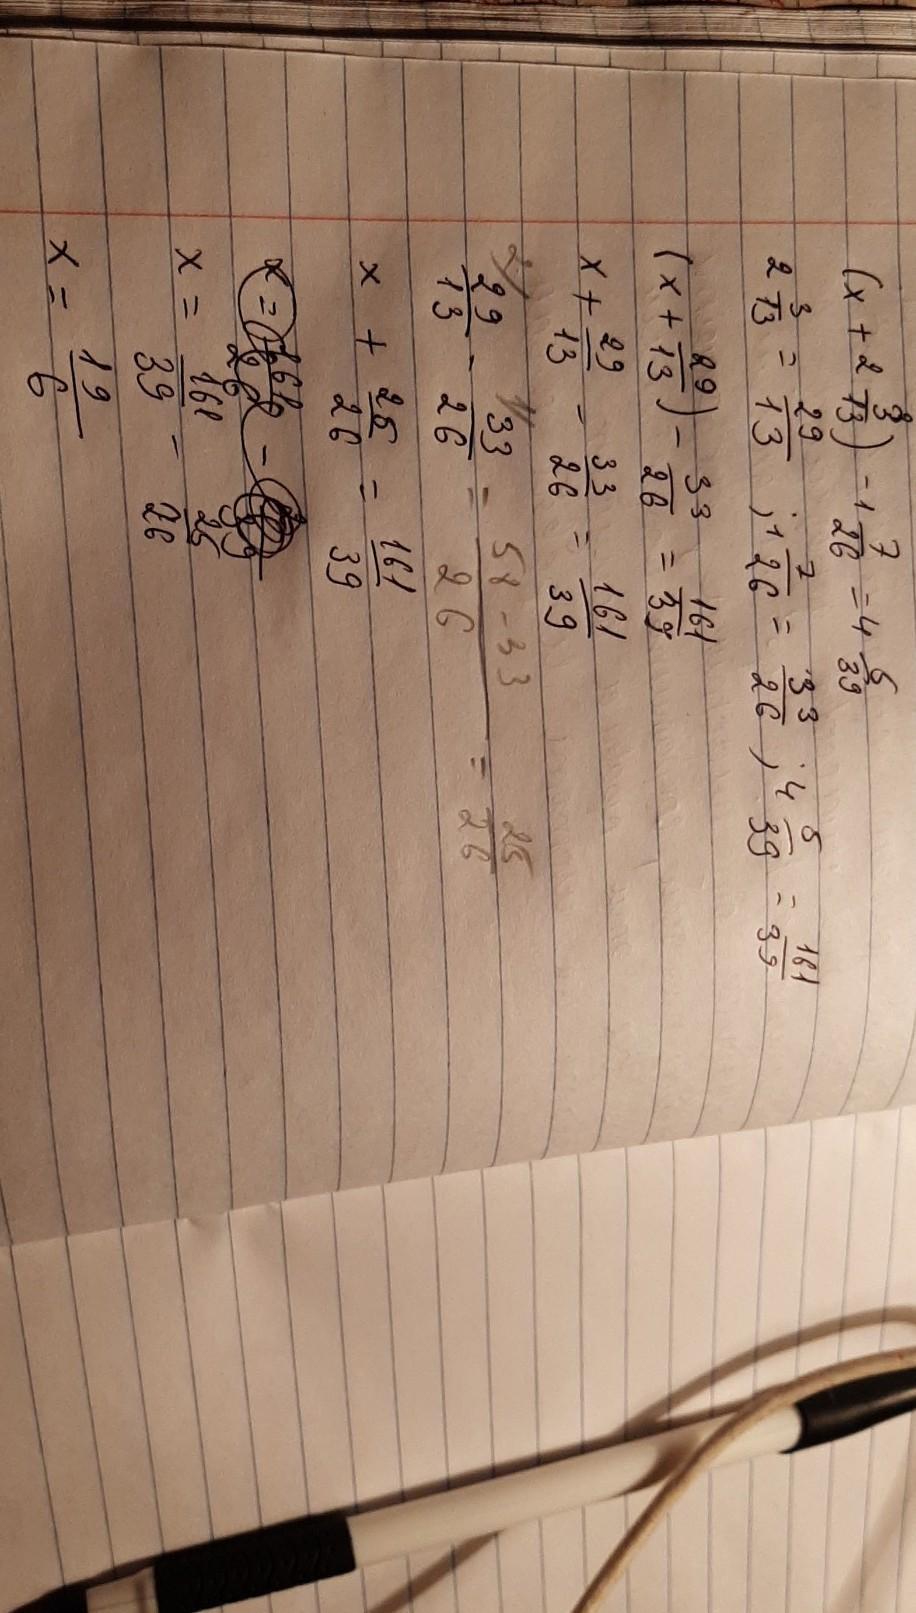 (x + 2 3/13) - 1 7/26 = 4 5/39
2 3/13 = 29/13 ; 1 7/26 = 33/26 ; 4 5/39 = 161/39
(x + 29/13) - 33/26 = 161/39
x + 29/13 - 33/26 = 161/39
29/13 - 33/26 = 58 - 33/26 = 25/26
x + 25/26 = 161/39
x = 161/39 - 25/26
x = 19/6